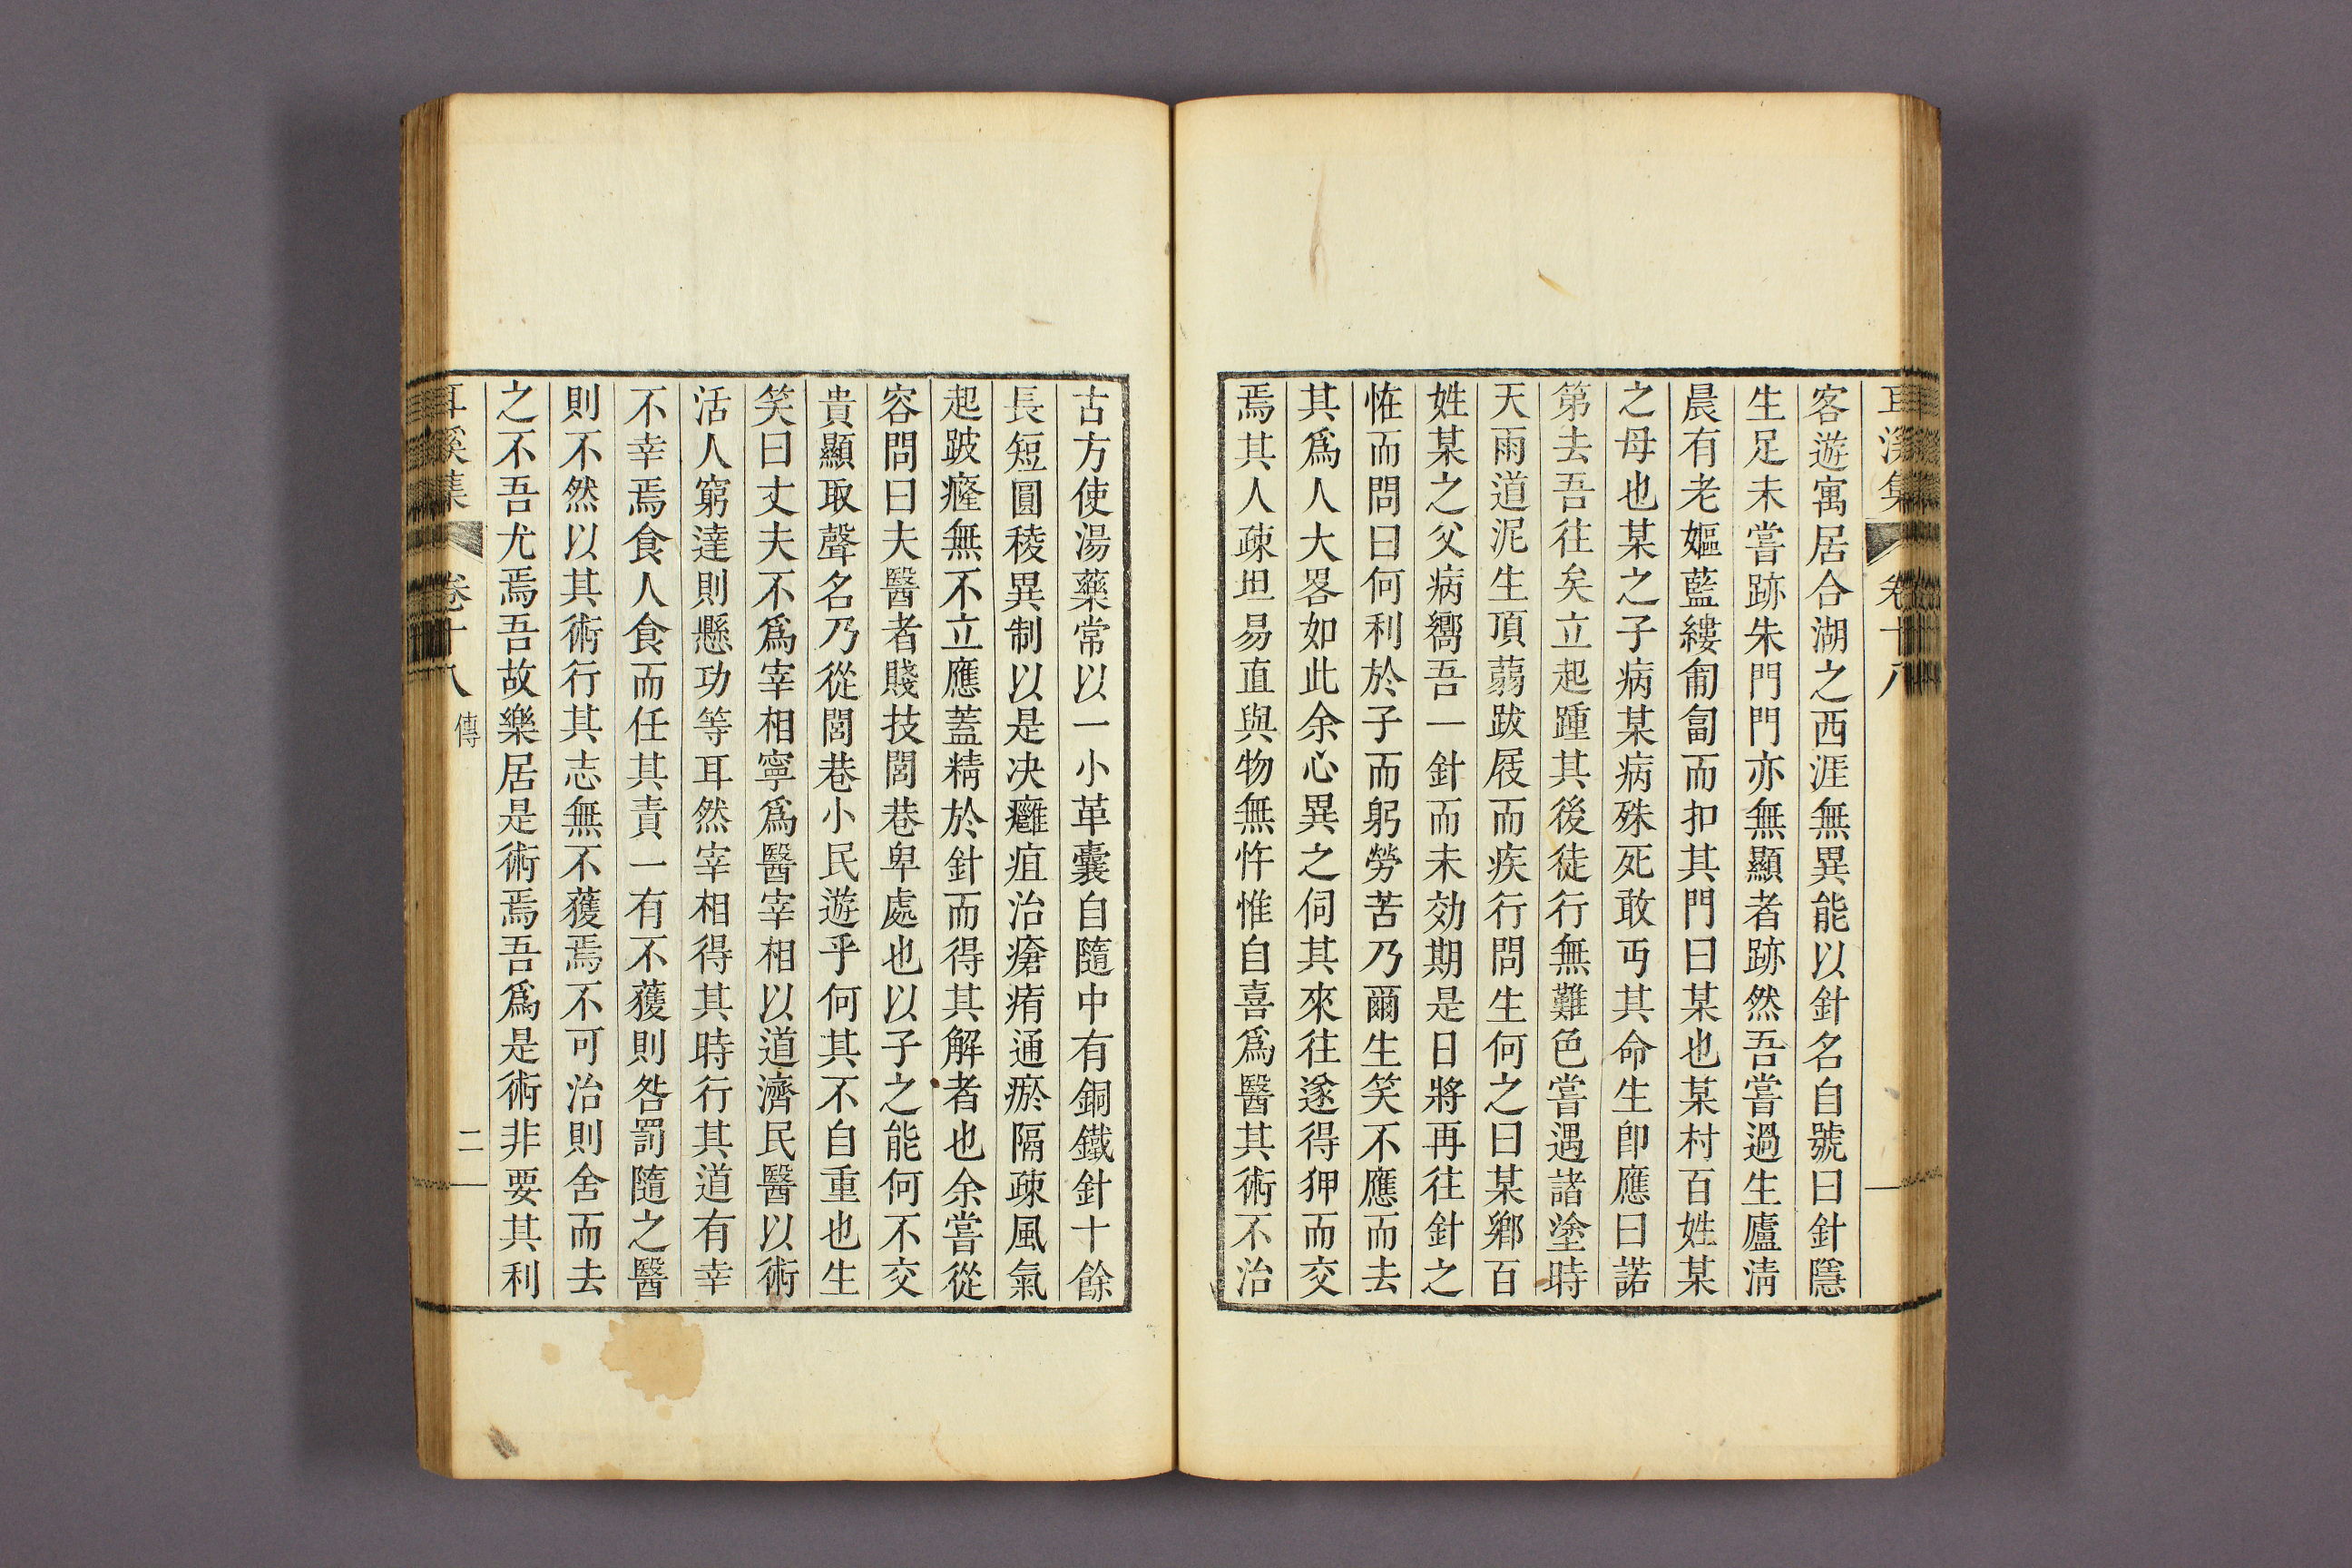 耳溪集 卷十八
客遊寓居合湖之西涯無異能以針名自號曰針隱
生足未嘗跡朱門門亦無顯者跡然吾嘗過生廬淸
晨有老嫗藍縷匍匐而扣其門曰某也某村百姓某
之母也某之子病某病殊死敢丐其命生卽應曰諾
第去吾往矣立起踵其後徒行無難色嘗遇諸塗時
天雨道泥生頂蒻跋屐而疾行問生何之曰某鄕百
姓某之父病嚮吾一針而未効期是日將再往針之
恠而問曰何利於子而躬勞苦乃爾生笑不應而去
其爲人大畧如此余心異之伺其來往遂得狎而交
焉其人疎坦易直與物無忤惟自喜爲醫其術不治
古方使湯藥常以一小革囊自隨中有銅鐵針十餘
長短圓稜異制以是決癰疽治瘡痏通瘀隔疎風氣
起跛癃無不立應蓋精於針而得其解者也余嘗從
容問曰夫醫者賤技閭巷卑處也以子之能何不交
貴顯取聲名乃從閭巷小民遊乎何其不自重也生
笑曰丈夫不爲宰相寧爲醫宰相以道濟民醫以術
活人窮達則懸功等耳然宰相得其時行其道有幸
不幸焉食人食而任其責一有不獲則咎罰隨之醫
則不然以其術行其志無不獲焉不可治則舍而去
之不吾尤焉吾故樂居是術焉吾爲是術非要其利
耳溪集 卷十八 傳 二